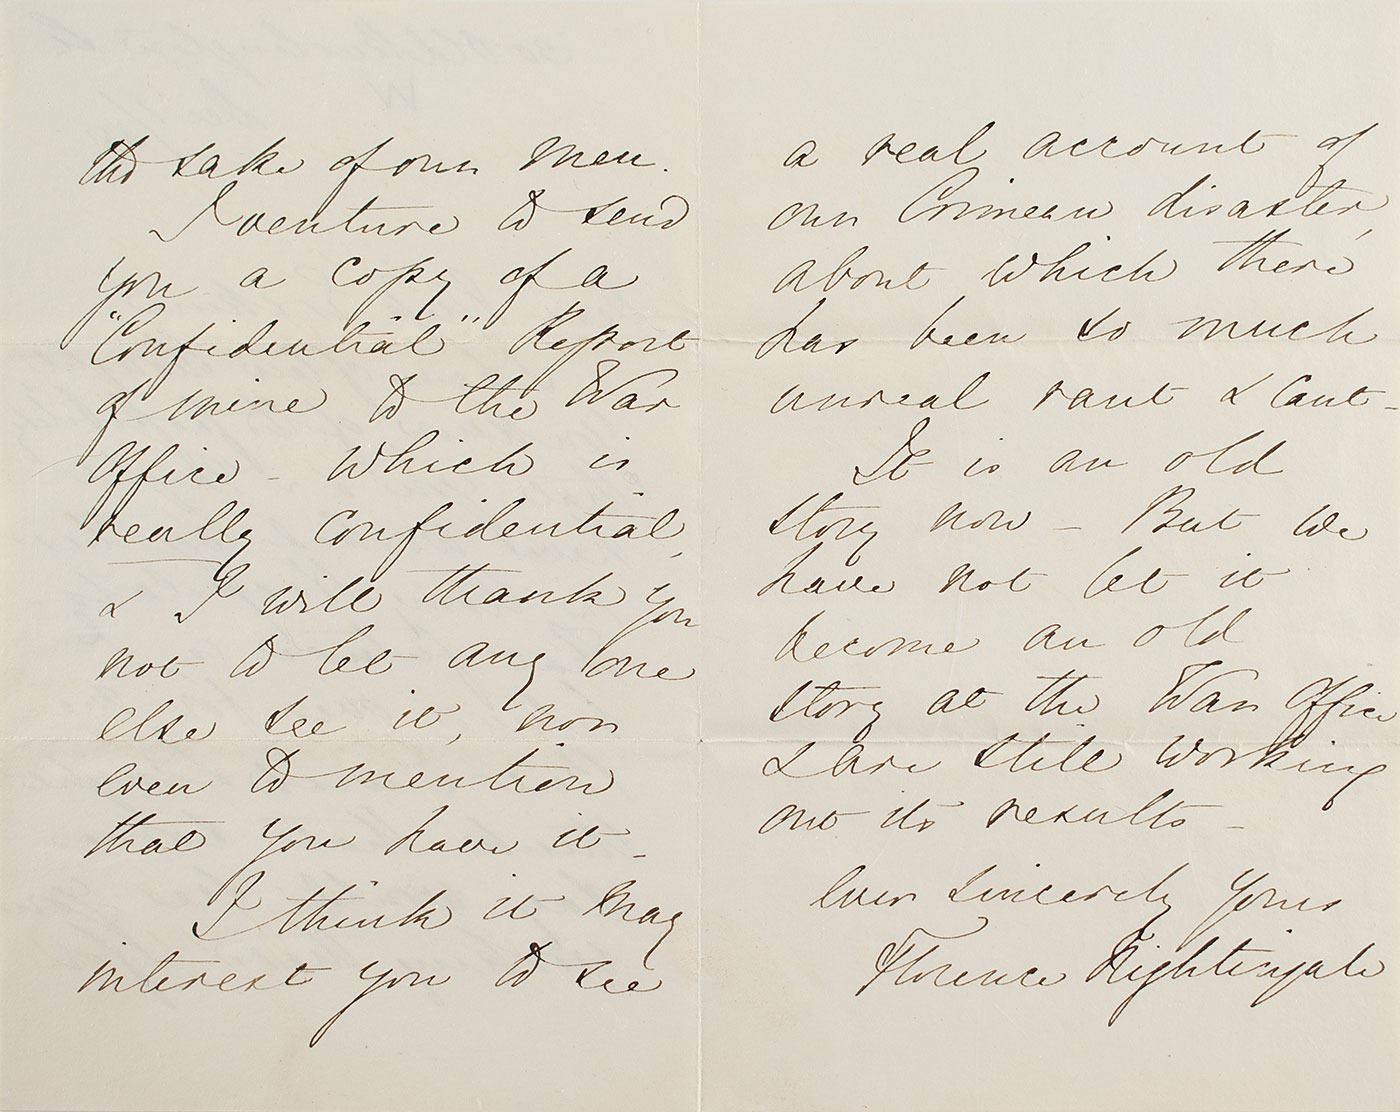 the sake of our men.
I venture to send
you a copy of a
"Confidential" Report
of mine to the War
Office - which is
really confidential,
& I will thank you
not to let any one
else see it, nor
even to mention
that you have it -
I think it may
interest you to see
a real account of
our Crimean disaster,
about which there
has been so much
unreal rant & cant -
It is an old
story now - But we
have not let it
become an old
story at the War Office
& are still working
out its results -
ever sincerely yours
Florence Nightingale